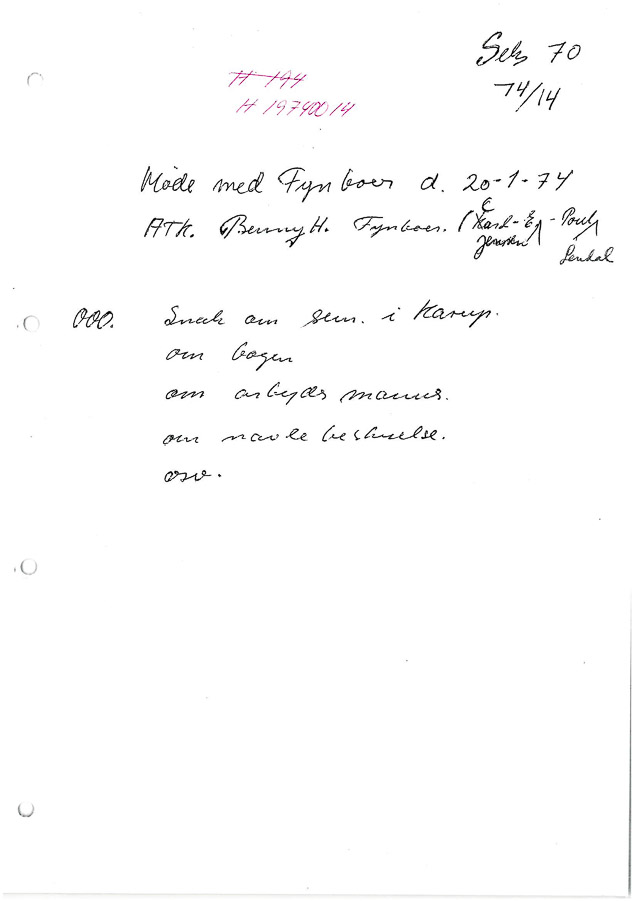 70
74/14
H 194
H 19740014
Møde med Fynboer d. 20-1-74
ATK. Benny H. Fynboer. (Karl-E - Poul
Jensen
000. Snak om sem. i Karup.
om bogen
om arbejds manus.
om
osv.